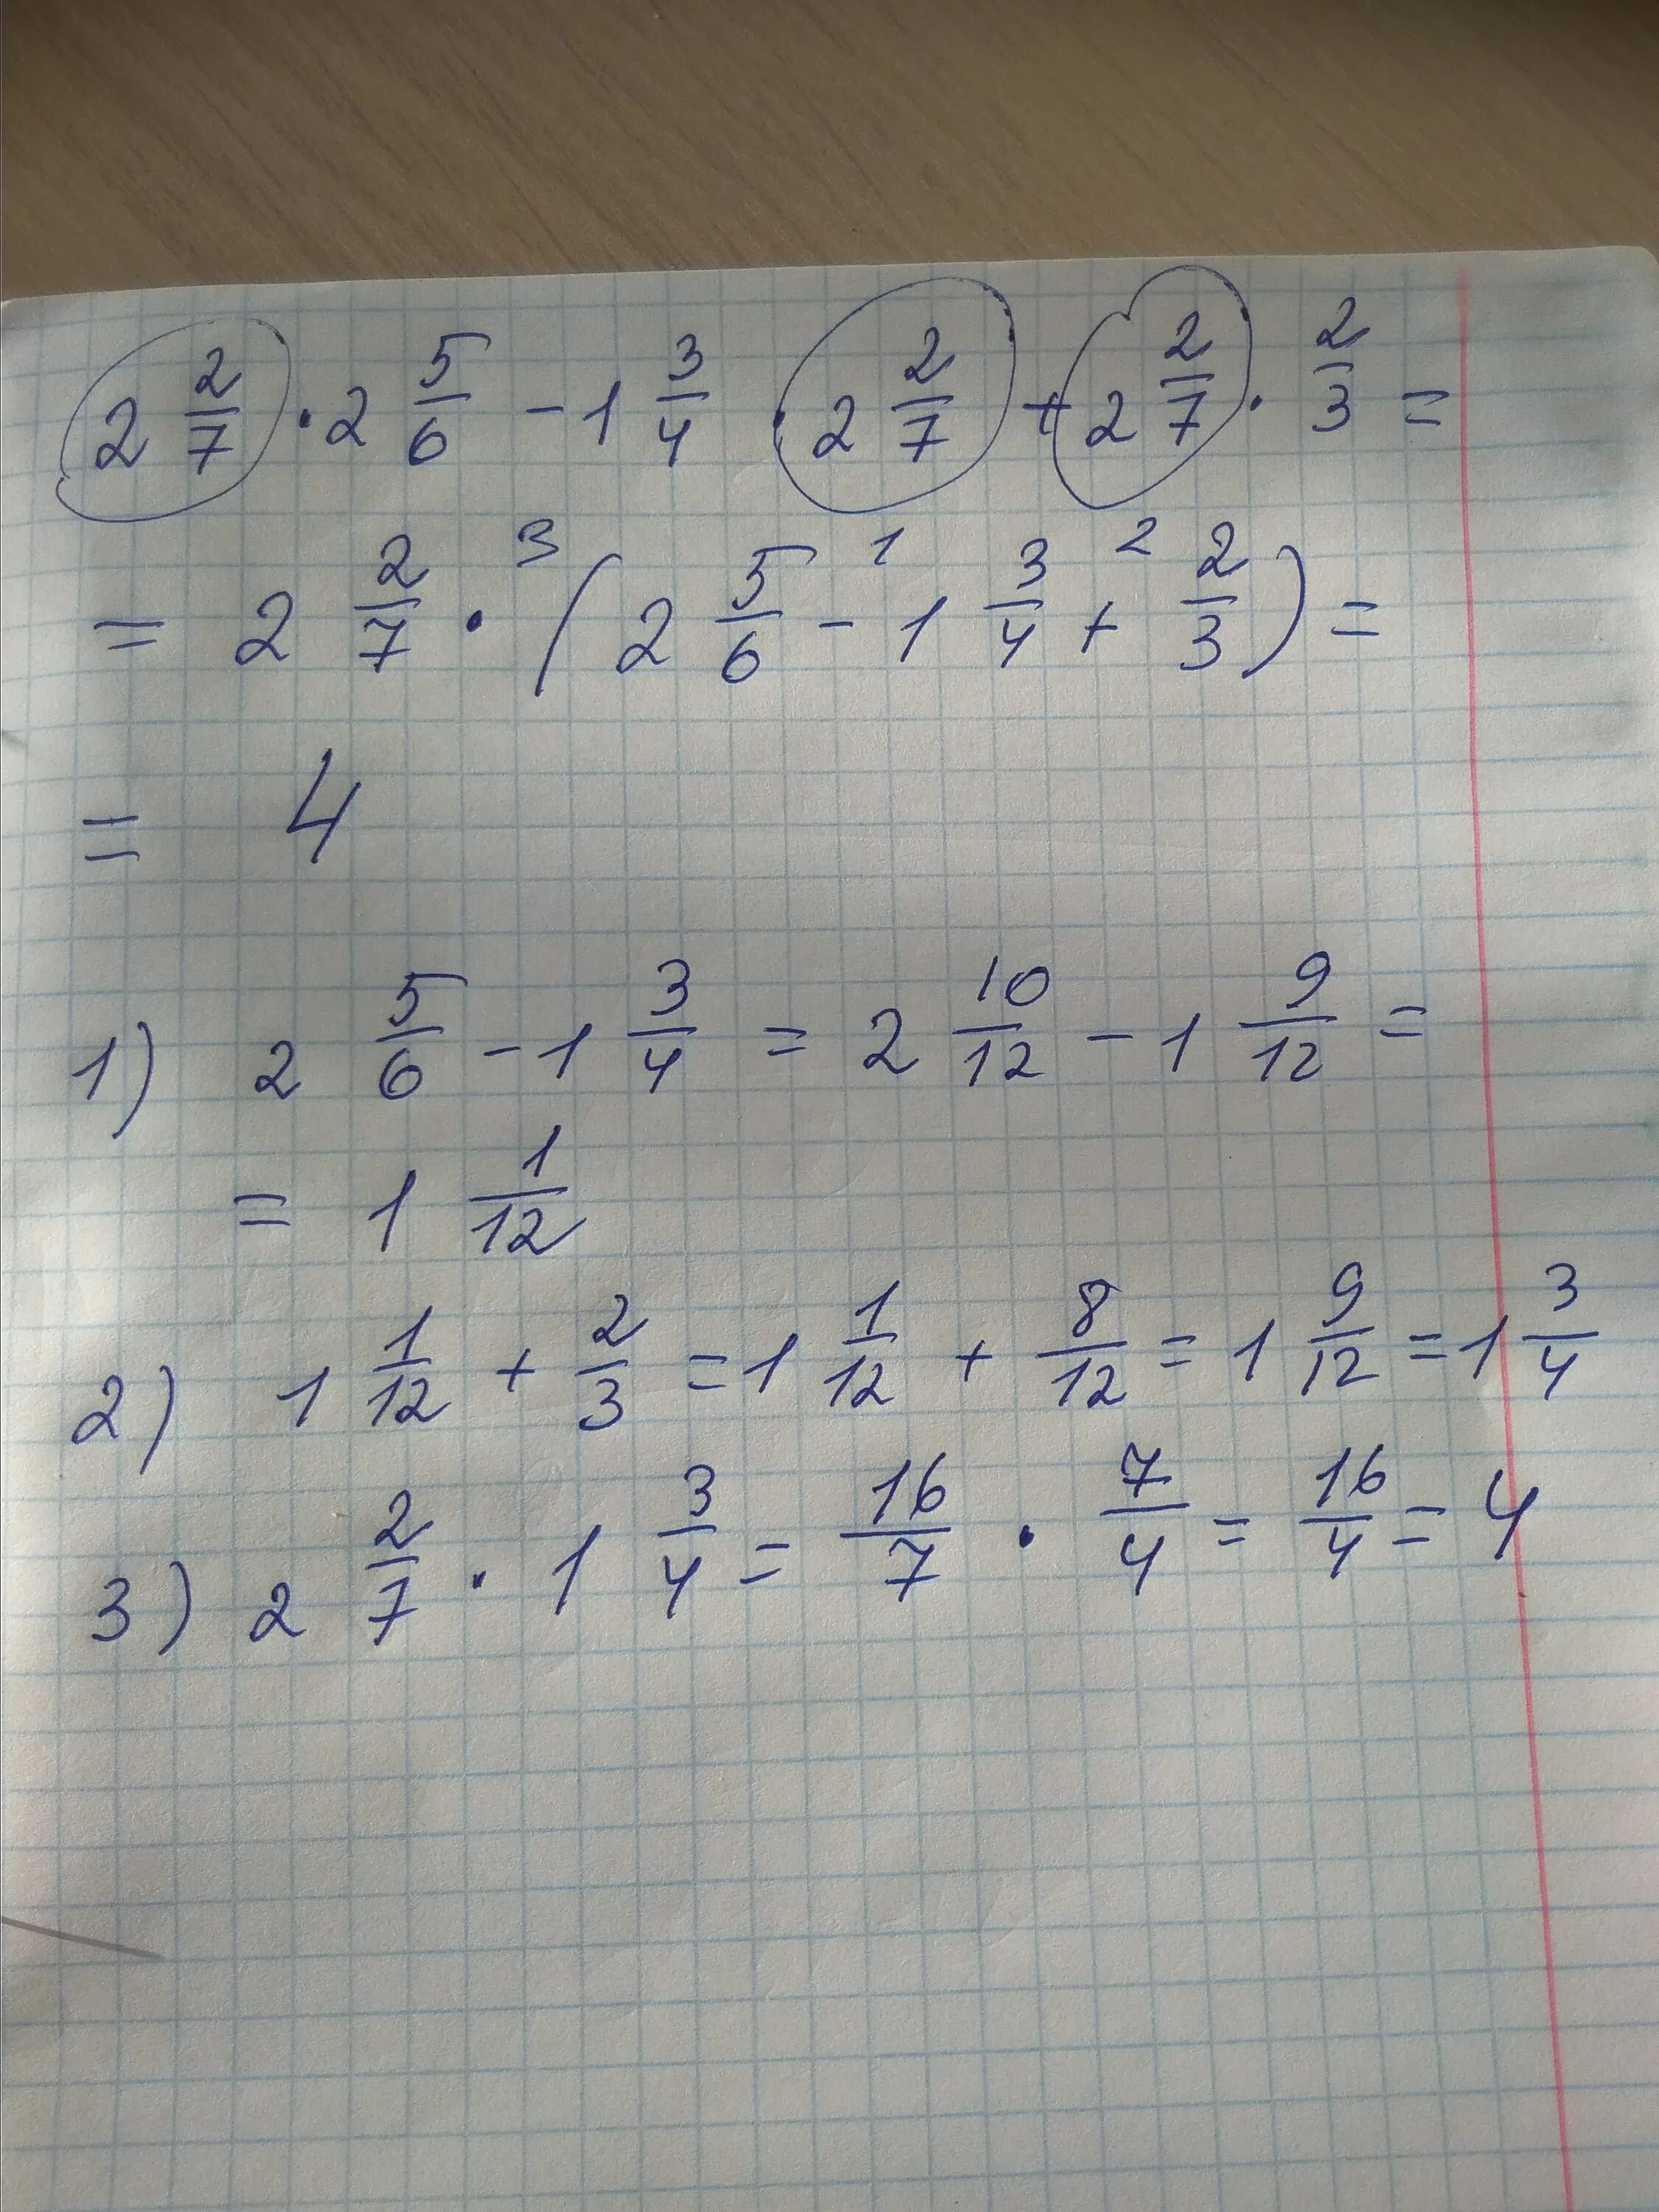 2 2/7 · 2 5/6 - 1 3/4 · 2 2/7 + 2 2/7 · 2/3 =
= 2 2/7 · 3 ( 2 5/6 - 1 1 3/4 + 2 2/3 ) =
= 4
1) 2 5/6 - 1 3/4 = 2 10/12 - 1 9/12 =
= 1 1/12
2) 1 1/12 + 2/3 = 1 1/12 + 8/12 = 1 9/12 = 1 3/4
3) 2 2/7 · 1 3/4 = 16/7 · 7/4 = 16/4 = 4